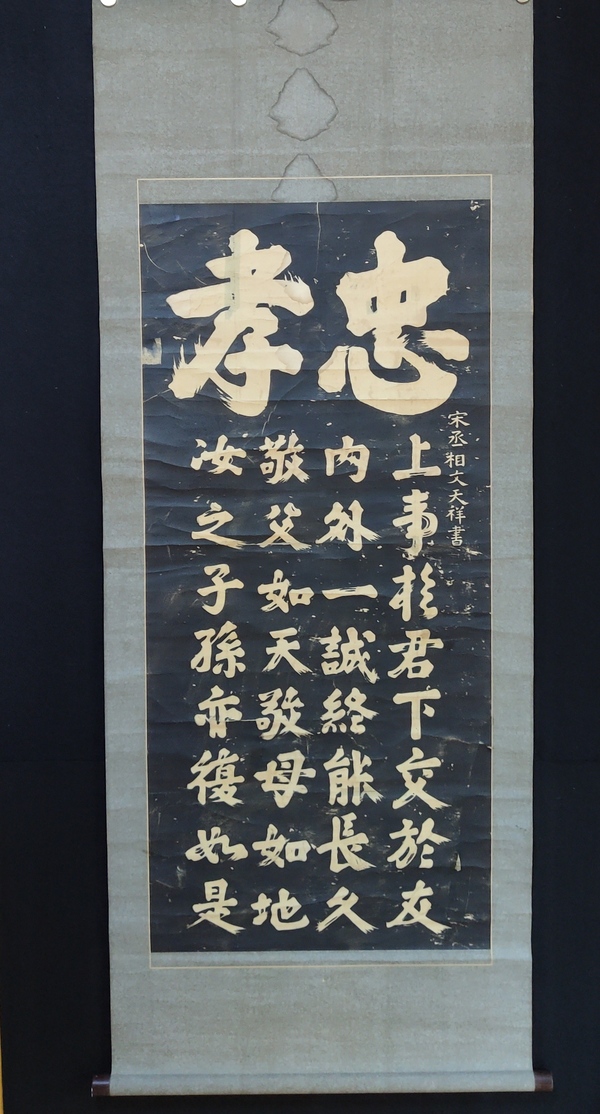 忠孝
宋丞相文天祥書
上事於君下交於友
内外一誠終能長久
敬父如天敬母如地
汝之子孫亦復如是